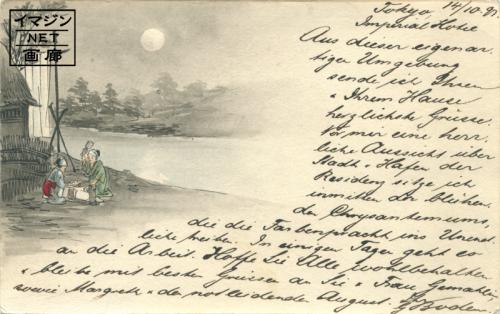 イマジン
NET
画廊
Tokyo 14/10. 97
Imperial Hotel
Aus dieser eigenar-
tigen Umgebung
sende ich Ihnen
& Ihrem Hause
herzlichste Grüsse.
Vor mir eine herr-
liche Aussicht über
Stadt & Hafen der
Residenz sitze ich
inmitten der bleihen-
den Chrysanthemums,
die die Farbenpracht ins Unend-
liche treiben. In einigen Tagen geht es
an die Arbeit. Hoffe Sie Alle wohlbehalten
& bleibe mit besten Grüssen an Sie & Frau Gemahlin
sowie Margreth & den notleidenden August.